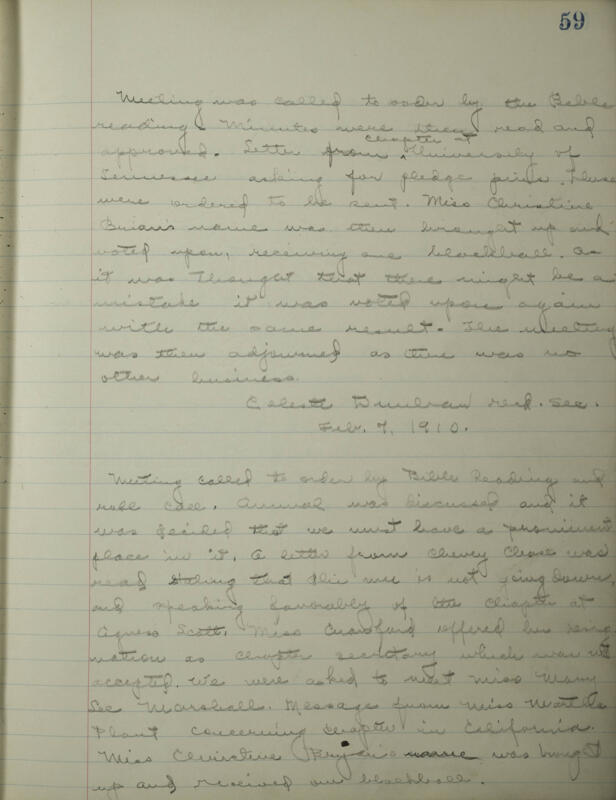 59
Meeting was called to order by the Bible
reading. Minutes were then read and
approved. Letter from chapter at University of
Tennessee asking for pledge pins. These
were ordered to be sent. Miss Christine
name was then brought up and
voted upon, receiving one blackball. As
it was thought that there might be a
mistake it was voted upon again
with the same result. The meeting
was then adjourned as there was no
other business.
Celeste rec. Sec.
Feb. 7, 1910.
Meeting called to order by Bible Reading and
roll call. Annual was discussed and it
was decided that we must have a prominent
place in it. A letter from Chevy Chase was
read stating that is not going down,
and speaking favorably of the Chapter at
Agness Scott. Miss Crawford offered her resig
nation as chapter secretary which was not
accepted. We were asked to meet Miss Mary
Lee Marshall. Message from Miss
Plant concerning chapter in California.
Miss Christine name was brought
up and received one blackball.